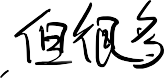 但很多